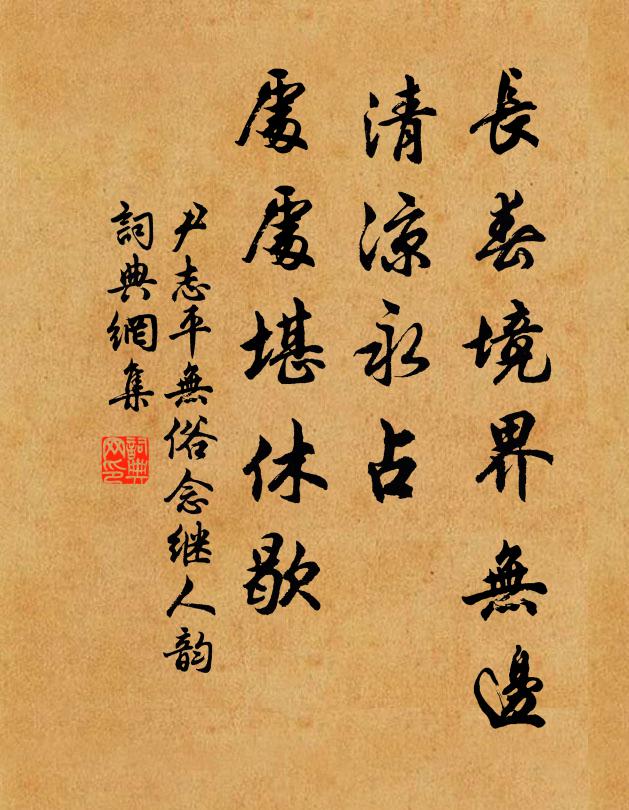 長春境界無邊
清涼永占
處處堪休歇
尹志平無俗念继人韵
詞典網集
詞典网印